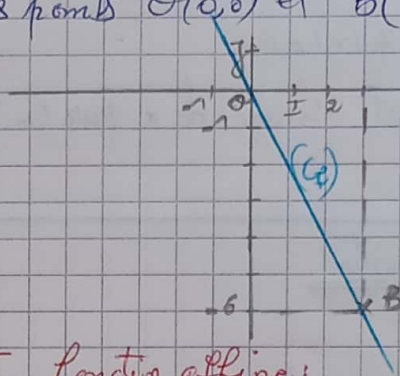 points O(0,0) et B(
J
-1 O I 2
-1
(Cf)
-6 B
fonction affine :